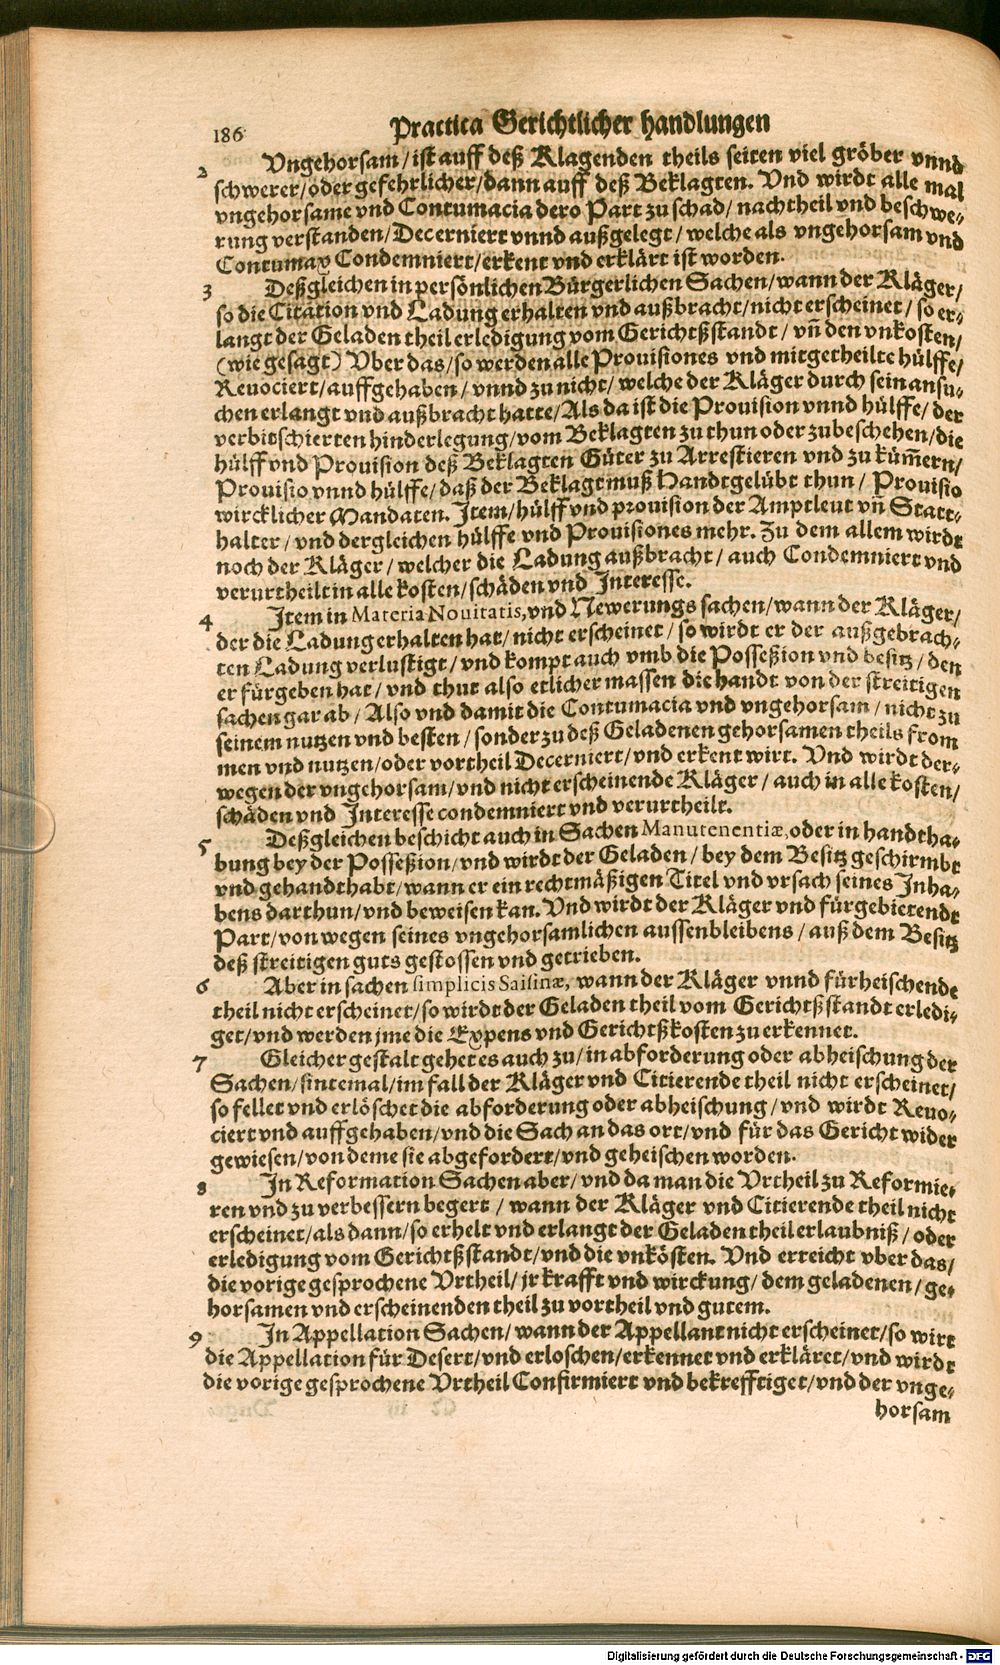 186 Practica Gerichtlicher handlungen
2 Vngehorsam/ist auff deß Klagenden theils seiten viel gröber vnnd
schwerer/oder gefehrlicher/dann auff deß Beklagten. Vnd wirdt alle mal
vngehorsame vnd Contumacia dero Part zu schad/ nachtheil vnd beschwe-
rung verstanden/Decerniert vnnd außgelegt/welche als vngehorsam vnd
Contumax Condemniert/erkent vnd erklärt ist worden.
3 Deßgleichen in persönlichen Bürgerlichen Sachen/wann der Kläger/
so die Citation vnd Ladung erhalten vnd außbracht/nicht erscheinet/so er-
langt der Geladen theil erledigung vom Gerichtßstandt/ vñ den vnkosten/
(wie gesagt) Vber das/so werden alle Prouisiones vnd mitgetheilte hülffe/
Reuociert/auffgehaben/vnnd zu nicht/welche der Kläger durch sein ansu-
chen erlangt vnd außbracht hatte/Als da ist die Prouision vnnd hülffe/der
verbitschierten hinderlegung/vom Beklagten zu thun oder zubeschehen/die
hülff vnd Prouision deß Beklagten Güter zu Arrestieren vnd zu küm̃ern/
Prouisio vnnd hülffe/daß der Beklagt muß Handtgelübt thun/ Prouisio
wircklicher Mandaten. Item/hülff vnd prouision der Amptleut vñ Statt-
halter/vnd dergleichen hülffe vnd Prouisiones mehr. Zu dem allem wirdt
noch der Kläger/welcher die Ladung außbracht/auch Condemniert vnd
verurtheilt in alle kosten/schäden vnd Interesse.
4 Item in Materia Nouitatis, vnd Newerungs sachen/wann der Kläger/
der die Ladung erhalten hat/nicht erscheinet/so wirdt er der außgebrach-
ten Ladung verlustigt/vnd kompt auch vmb die Possession vnd besitz/den
er fürgeben hat/vnd thut also etlicher massen die handt von der streitigen
sachen gar ab/Also vnd damit die Contumacia vnd vngehorsam/nicht zu
seinem nutzen vnd besten/sonder zu deß Geladenen gehorsamen theils from
men vnd nutzen/oder vortheil Decerniert/vnd erkent wirt. Vnd wirdt der-
wegen der vngehorsam/vnd nicht erscheinende Kläger/auch in alle kosten/
schäden vnd Interesse condemniert vnd verurtheilt.
5 Deßgleichen beschicht auch in Sachen Manutenentiæ, oder in handtha-
bung bey der Possession/vnd wirdt der Geladen/bey dem Besitz geschirmbt
vnd gehandthabt/wann er ein rechtmäßigen Titel vnd vrsach seines Inha-
bens darthun/vnd beweisen kan. Vnd wirdt der Kläger vnd fürgebietendt
Part/von wegen seines vngehorsamlichen aussenbleibens/auß dem Besitz
deß streitigen guts gestossen vnd getrieben.
6 Aber in sachen simplicis Saisinæ, wann der Kläger vnnd fürheischende
theil nicht erscheinet/so wirdt der Geladen theil vom Gerichtßstandt erledi-
get/vnd werden jme die Expens vnd Gerichtßkosten zu erkennet.
7 Gleicher gestalt gehet es auch zu/in abforderung oder abheischung der
Sachen/sintemal/im fall der Kläger vnd Citierende theil nicht erscheinet/
so fellet vnd erlöschet die abforderung oder abheischung/vnd wirdt Reuo-
ciert vnd auffgehaben/vnd die Sach an das ort/vnd für das Gericht wider
gewiesen/von deme sie abgefordert/vnd geheischen worden.
8 In Reformation Sachen aber/vnd da man die Vrtheil zu Reformie-
ren vnd zu verbessern begert/wann der Kläger vnd Citierende theil nicht
erscheinet/als dann/so erhelt vnd erlangt der Geladen theil erlaubniß/oder
erledigung vom Gerichtßstandt/vnd die vnkösten. Vnd erreicht vber das/
die vorige gesprochene Vrtheil/jr krafft vnd wirckung/dem geladenen/ge-
horsamen vnd erscheinenden theil zu vortheil vnd gutem.
9 In Appellation Sachen/wann der Appellant nicht erscheinet/so wirt
die Appellation für Desert/vnd erloschen/erkennet vnd erkläret/vnd wirdt
die vorige gesprochene Vrtheil Confirmiert vnd bekrefftiget/vnd der vnge-
horsam
Digitalisierung gefördert durch die Deutsche Forschungsgemeinschaft - DFG